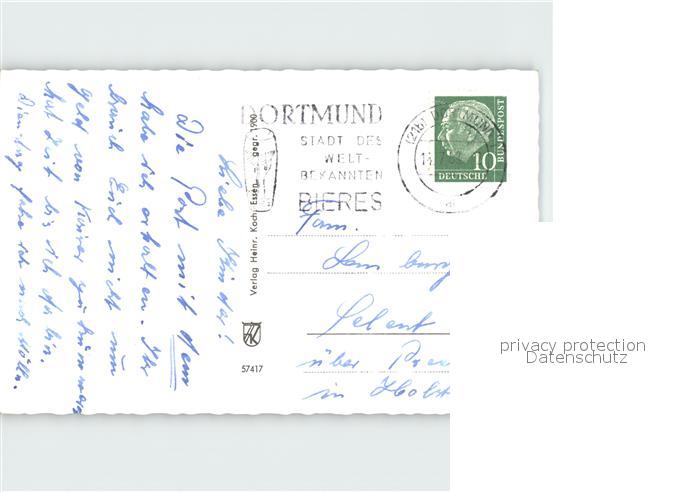 Liebe Kinder!
Die Post mit dem
habe ich erhalten. Ihr
braucht Euch nicht um
Geld von
hat Zeit bis ich da bin.
Dienstag fahre ich nach Mölln.
Verlag Heinr. Koch, Essen gegr. 1900
57417
DORTMUND
STADT DES
WELT-
BEKANNTEN
BIERES
DEUTSCHE
BUNDESPOST
10
Fam.
Selent
über Pree
in Holst
privacy protection
Datenschutz